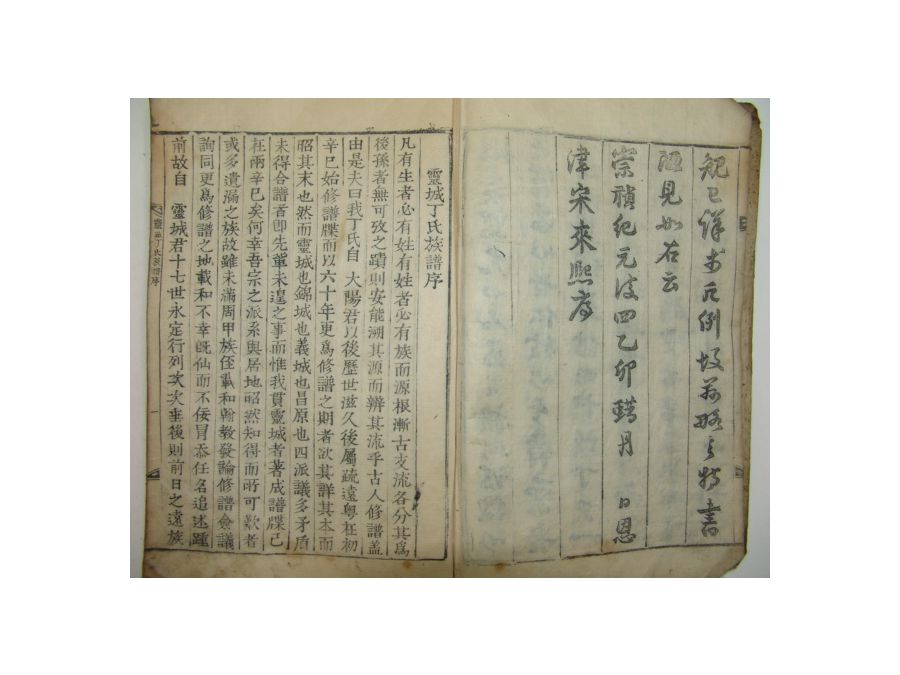 規已詳於凡例故首略之特書
陋見如右云
崇禎紀元後四乙卯臘月 日恩
津宋來熙序
靈城丁氏族譜序
凡有生者必有姓有姓者必有族而源根漸古支流各分其爲
後孫者無可攷之蹟則安能溯其源而辨其流乎古人修譜盖
由是夫曰我丁氏自 大陽君以後歷世滋久後屬疏遠粤在初
辛巳始修譜牒而以六十年更爲修譜之期者欲其詳其本而
昭其末也然而靈城也錦城也義城也昌原也四派議多矛盾
未得合譜者卽先輩未遑之事而惟我貫靈城者著成譜牒己
在兩辛巳矣何幸吾宗之派系與居地昭然知得而所可歎者
或多遺漏之族故雖未滿周甲族侄載和翰敎發論修譜僉議
詢同更爲修譜之地載和不幸旣仙而不佞冒忝任名追述踵
前故自 靈城君十七世永定行列次次垂後則前日之遠族
靈城丁氏族譜序
一